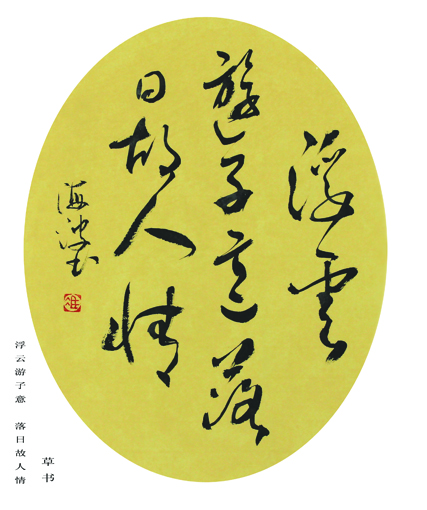 浮雲
遊子意落
日故人情
海波书
浮云游子意 落日故人情
草书